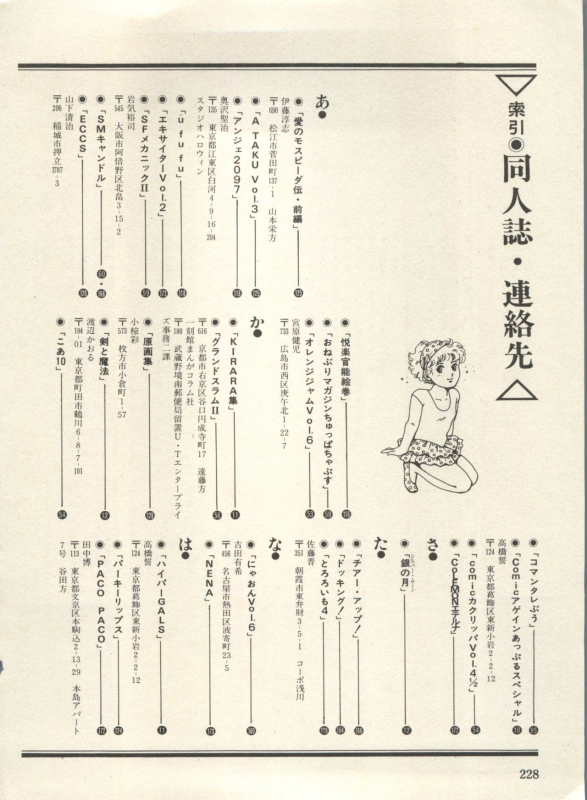 索引◉同人誌・連絡先
あ●
◉「愛のモスピーダ伝・前編」
伊藤淳志
〒690 松江市菅田町137-1 山本栄方
◉「A TAKU Vol.3」
◉「アンジェ2097」
奥沢聖治
〒135 東京都江東区白河4-9-16-204
スタジオハロウィン
◉「u fu fu」
◉「エキサイターVol.2」
◉「SFメカニックII」
岩気裕司
〒545 大阪市阿倍野区北畠3-15-2
◉「SMキャンドル」
◉「ECCS」
山下清治
〒206 稲城市押立1787-3
◉「悦楽官能絵巻」
◉「おねぶりマガジンちゅっぱちゃぷす」
◉「オレンジジャムVol.6」
宮原健児
〒733 広島市西区庚午北1-22-7
か●
◉「KIRARA集」
◉「グランドスラムII」
〒616 京都市右京区谷口円成寺町17 遠藤方
一刻館まんがコラム社
〒180 武蔵野境南郵便局留置U・Tエンタープライ
ズ事務二課
◉「原画集」
小椋彩
〒573 枚方市小倉町1-57
◉「剣と魔法」
渡辺かおる
〒194-01 東京都町田市鶴川6-8-7-101
◉「こあ10」
◉「コマンタレぶう」
◉「Comicアゲインあっぷるスペシャル」
高橋誓
〒124 東京都葛飾区東新小岩2-2-12
◉「comicカクリッパVol.4½」
さ●
◉「銀の月」
た●
◉「チアー・アップ!」
◉「ドッキング!」
◉「とろろいも4」
佐藤晋
〒351 朝霞市東弁財3-5-1 コーポ浅川
な●
◉「にゃおんVol.6」
吉田有希
〒456 名古屋市熱田区波寄町23-5
◉「NENA」
は●
◉「ハイパーGALS」
高橋誓
〒124 東京都葛飾区東新小岩2-2-12
◉「パーキーリップス」
◉「PACO PACO」
田中博
〒113 東京都文京区本駒込2-13-29 本島アパート
7号 谷田方
228